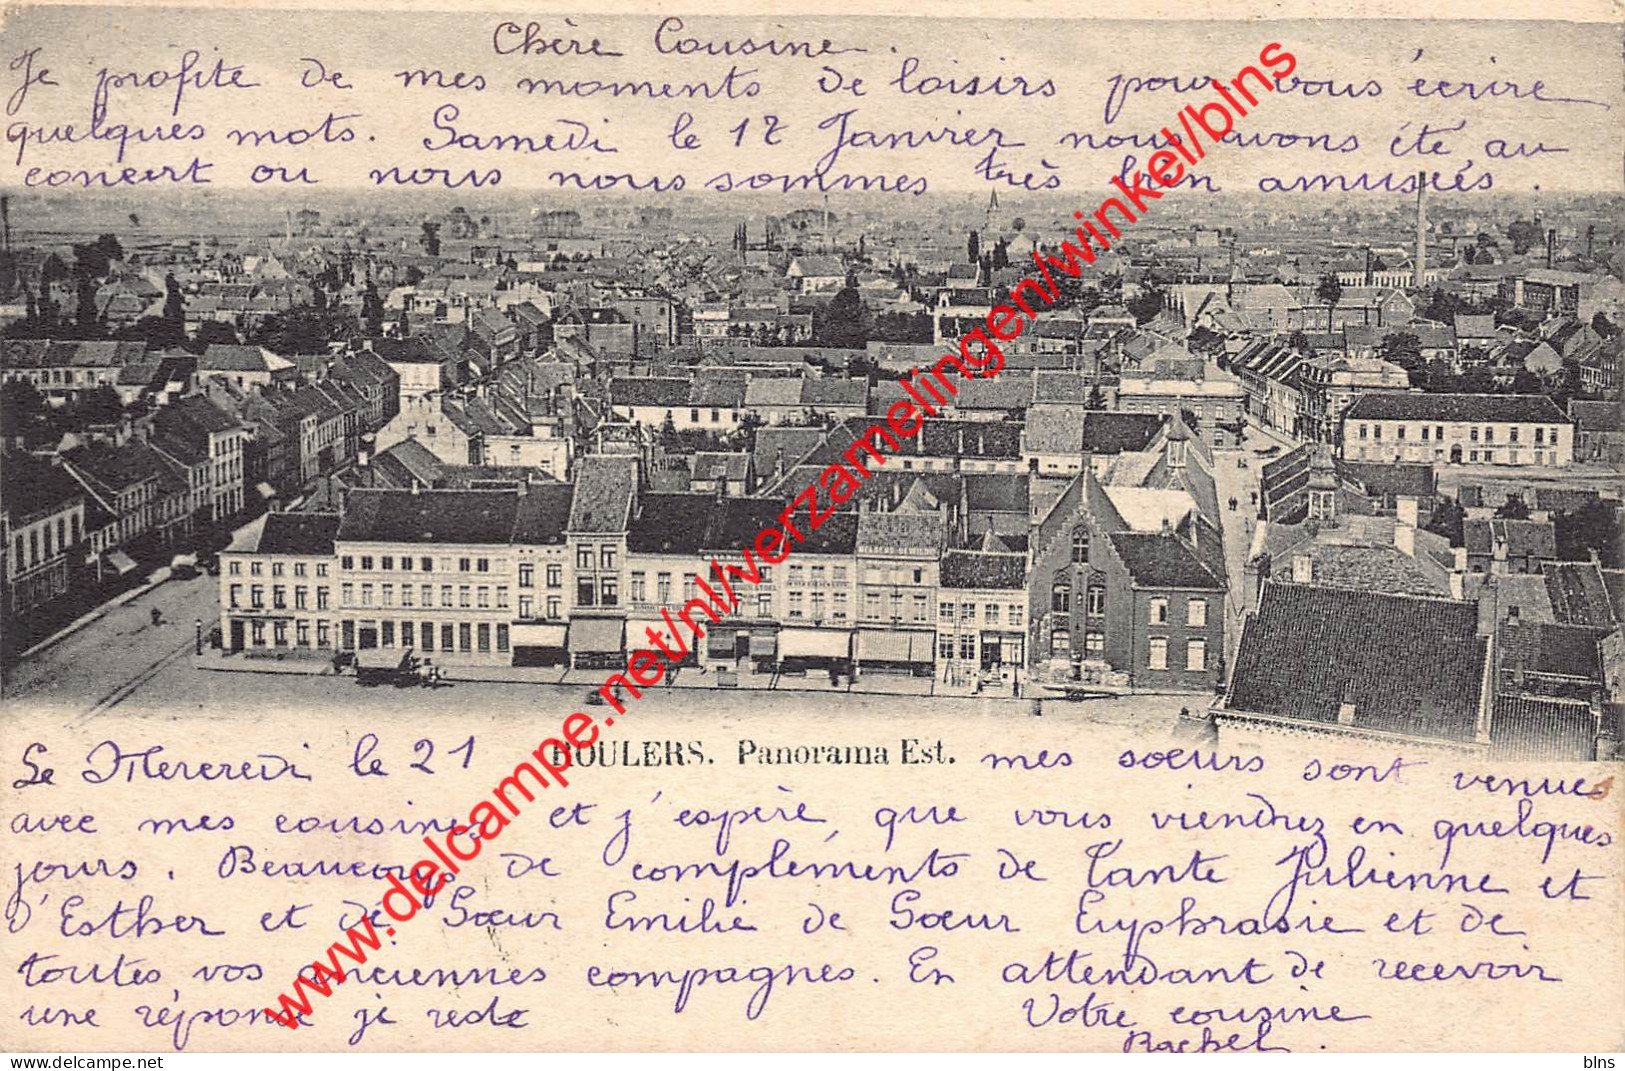 Chère Cousine.
Je profite de mes moments de loisirs pour vous écrire
quelques mots. Samedi le 17 Janvier nous avons été au
concert ou nous nous sommes très bien amusées.
Le Mercredi le 21 mes sœurs sont venues
ROULERS. Panorama Est.
avec mes cousines et j'espère que vous viendrez en quelques
jours. Beaucoup de complements de Tante Julienne et
d'Esther et de Sœur Emilie de Sœur Euyphrasie et de
toutes vos anciennes compagnes. En attendant de recevoir
une réponse je reste Votre cousine
Rachel.
www.delcampe.net/nl/verzamelingen/winkel/blns
blns